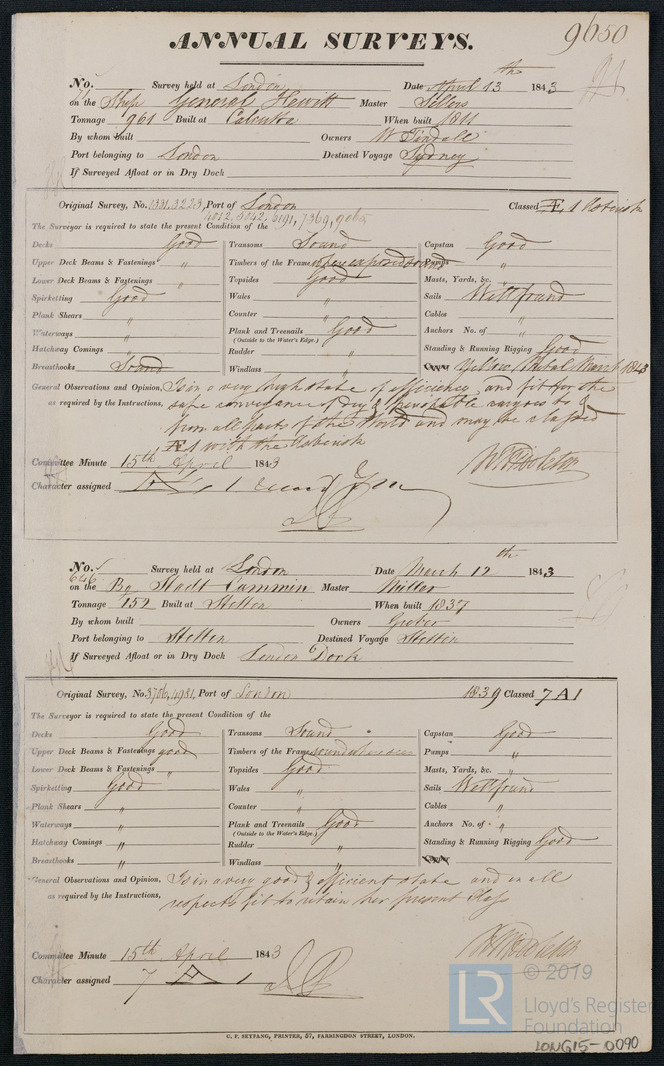 9650
ANNUAL SURVEYS.
No. Survey held at London Date April 13th 1843
on the Ship General Hewitt Master Sellers
Tonnage 961 Built at Calcutta When built 1811
By whom built Owners W Tindall
Port belonging to London Destined Voyage Sydney
If Surveyed Afloat or in Dry Dock
Original Survey, No. 1331, 3223, Port of London Classed Æ 1 Asterisk
4012, 5042, 6191, 7369, 9062
The Surveyor is required to state the present Condition of the
Decks Good Transoms Sound Capstan Good
Upper Deck Beams & Fastenings " Timbers of the Frame where exposed sound Pumps "
Lower Deck Beams & Fastenings " Topsides Good Masts, Yards, &c. "
Spirketting Good Wales " Sails Well found
Plank Shears " Counter " Cables "
Waterways " Plank and Treenails Good Anchors No. of "
(Outside to the Water's Edge.)
Hatchway Comings " Rudder " Standing & Running Rigging Good
Breasthooks Sound Windlass " Copper Yellow Metal March 1843
General Observations and Opinion, Is in a very high state of efficiency and fit for the
as required by the Instructions, safe conveyance of Dry & Perishable cargoes to &
from all parts of the World and may be classed
Æ 1 with the Asterisk
Committee Minute 15th April 1843
Character assigned Æ 1
No. 646 Survey held at London Date March 12th 1843
on the Bg Stadt Cammin Master Miller
Tonnage 152 Built at Stettin When built 1837
By whom built Owners Greber
Port belonging to Stettin Destined Voyage Stettin
If Surveyed Afloat or in Dry Dock London Dock
Original Survey, No. 3706, 4981, Port of London 1839 Classed 7 A 1
The Surveyor is required to state the present Condition of the
Decks Good Transoms Sound Capstan Good
Upper Deck Beams & Fastenings good Timbers of the Frame sound Pumps "
Lower Deck Beams & Fastenings " Topsides Good Masts, Yards, &c. "
Spirketting Good Wales " Sails Well found
Plank Shears " Counter " Cables "
Waterways " Plank and Treenails Good Anchors No. of "
(Outside to the Water's Edge.)
Hatchway Comings " Rudder " Standing & Running Rigging Good
Breasthooks " Windlass " Copper
General Observations and Opinion, Is in a very good & efficient state and in all
as required by the Instructions, respects fit to retain her present Class
Committee Minute 15th April 1843
Character assigned 7 A 1
C. F. SEYFANG, PRINTER, 57, FARRINGDON STREET, LONDON.
LR © 2019
Lloyd's Register
Foundation
LONG15-0090